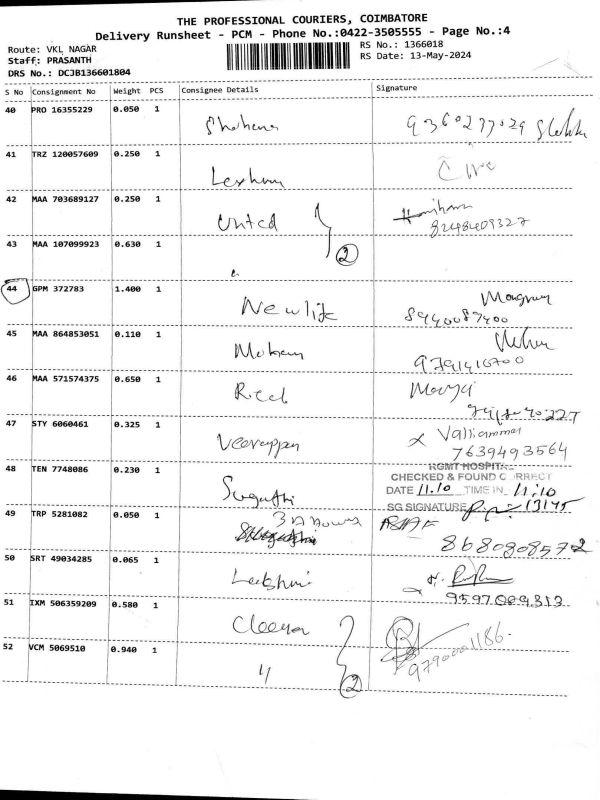 THE PROFESSIONAL COURIERS, COIMBATORE
Delivery Runsheet - PCM - Phone No.:0422-3505555 - Page No.:4
Route: VKL NAGAR
RS No.: 1366018
Staff: PRASANTH
RS Date: 13-May-2024
DRS No.: DCJB136601804
S No Consignment No Weight PCS Consignee Details Signature
40 PRO 16355229 0.050 1
41 TRZ 120057609 0.250 1
42 MAA 703689127 0.250 1 United
8248409327
43 MAA 107099923 0.630 1 2
44 GPM 372783 1.400 1 Newlife
8940087400
45 MAA 864853051 0.110 1
9791416700
46 MAA 571574375 0.650 1
47 STY 6060461 0.325 1 Veerappan x Valliammal
7639493564
48 TEN 7748086 0.230 1 Suguthi
RGMT HOSPITAL
CHECKED & FOUND CORRECT
DATE 11.10 TIME IN 11:10
SG SIGNATURE 13145
49 TRP 5281082 0.050 1
8680908572
50 SRT 49034285 0.065 1 Lakshmi
9597009313
51 IXM 506359209 0.580 1
9790001186
52 VCM 5069510 0.940 1 " 2